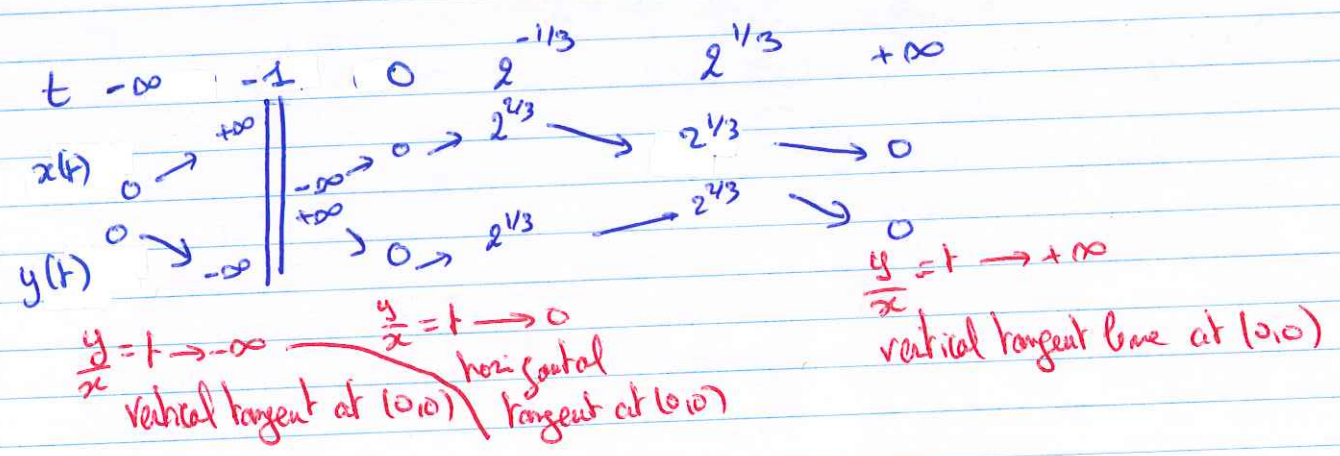 t -∞ -1 0 2^{-1/3} 2^{1/3} +∞
x(t) 0 ↗ +∞ || -∞ → 0 → 2^{2/3} ↘ 2^{1/3} → 0
y(t) 0 ↘ -∞ || +∞ ↘ 0 → 2^{1/3} → 2^{2/3} ↘ 0
y/x = t → -∞
vertical tangent at (0,0)
y/x = t → 0
horizontal
tangent at (0,0)
y/x = t → +∞
vertical tangent line at (0,0)